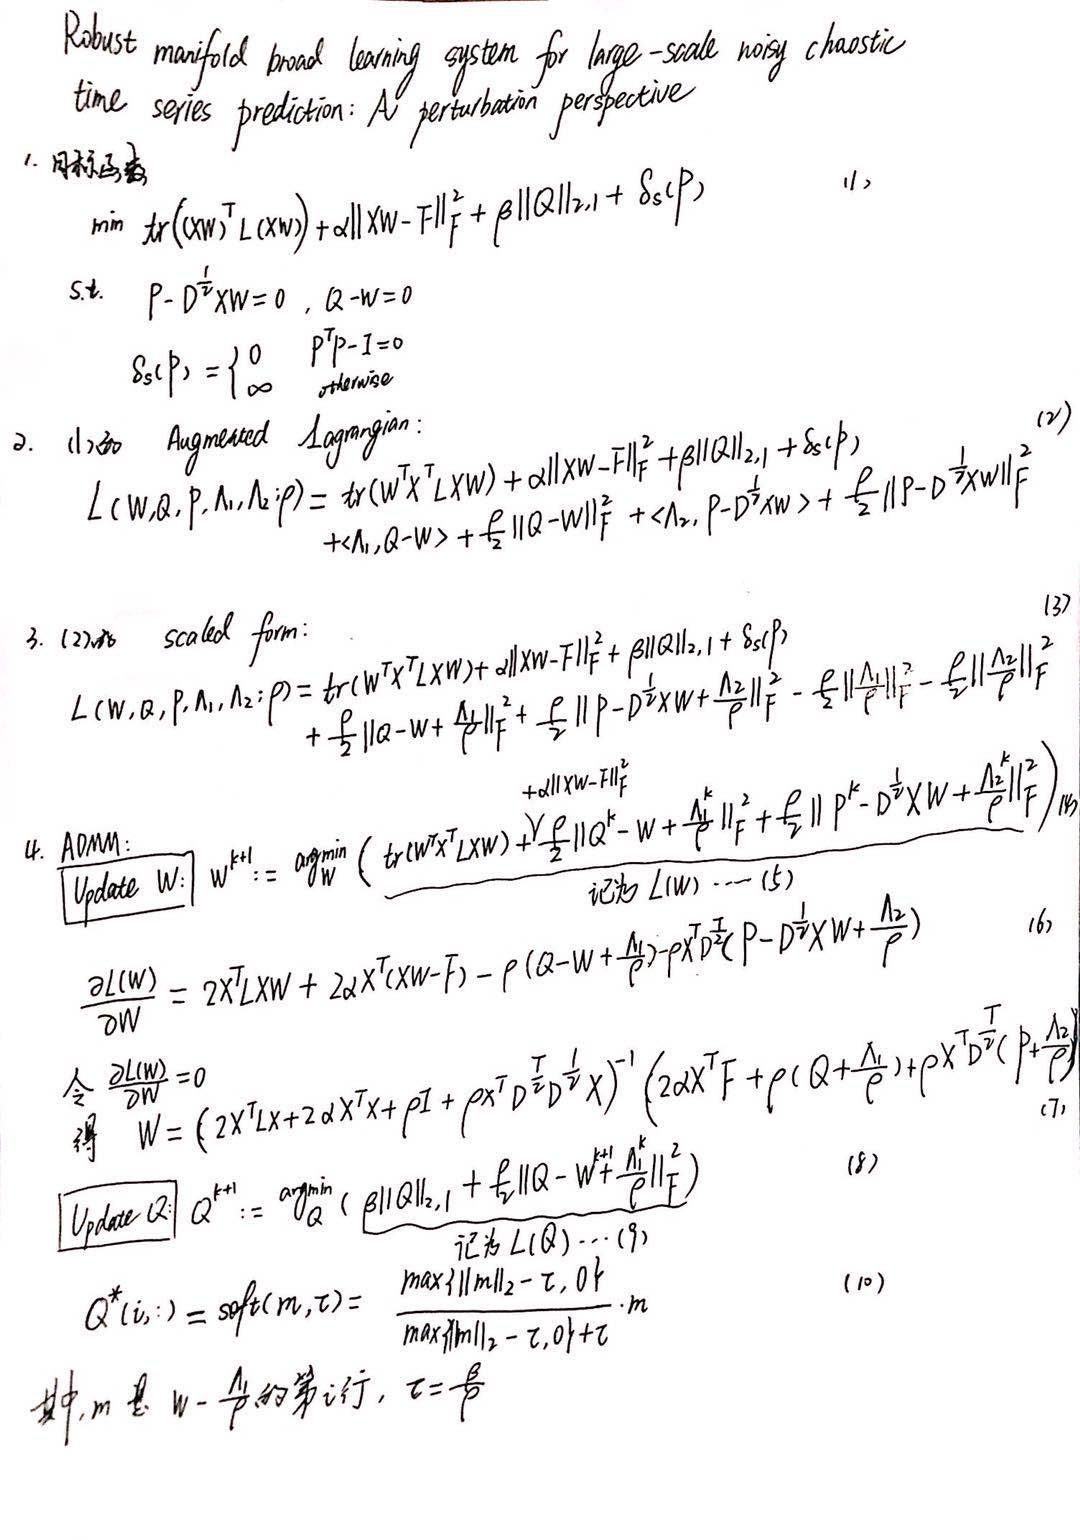 Robust manifold broad learning system for large-scale noisy chaostic
time series prediction: A perturbation perspective
1. 目标函数
min tr((XW)^T L(XW)) + α||XW-F||_F^2 + β||Q||_{2,1} + δ_s(P) (1)
s.t. P-D^{1/2}XW=0 , Q-W=0
δ_s(P) = { 0 P^TP-I=0
∞ otherwise
2. (1)的 Augmented Lagrangian: (2)
L(W,Q,P,Λ_1,Λ_2;ρ) = tr(W^TX^TLXW) + α||XW-F||_F^2 + β||Q||_{2,1} + δ_s(P)
+<Λ_1,Q-W> + ρ/2||Q-W||_F^2 + <Λ_2, P-D^{1/2}XW> + ρ/2||P-D^{1/2}XW||_F^2
3. (2)的 scaled form: (3)
L(W,Q,P,Λ_1,Λ_2;ρ) = tr(W^TX^TLXW) + α||XW-F||_F^2 + β||Q||_{2,1} + δ_s(P)
+ ρ/2||Q-W+Λ_1/ρ||_F^2 + ρ/2||P-D^{1/2}XW+Λ_2/ρ||_F^2 - ρ/2||Λ_1/ρ||_F^2 - ρ/2||Λ_2/ρ||_F^2
+α||XW-F||_F^2
4. ADMM:
Update W: W^{k+1} := argmin_W ( tr(W^TX^TLXW) + ρ/2||Q^k-W+Λ_1^k/ρ||_F^2 + ρ/2||P^k-D^{1/2}XW+Λ_2^k/ρ||_F^2 ) (4)
记为 L(W) ---- (5)
∂L(W)/∂W = 2X^TLXW + 2αX^T(XW-F) - ρ(Q-W+Λ_1/ρ) - ρX^TD^{T/2}(P-D^{1/2}XW+Λ_2/ρ) (6)
令 ∂L(W)/∂W = 0
得 W = (2X^TLX+2αX^TX+ρI+ρX^TD^{T/2}D^{1/2}X)^{-1} (2αX^TF+ρ(Q+Λ_1/ρ)+ρX^TD^{T/2}(P+Λ_2/ρ)
(7)
Update Q: Q^{k+1} := argmin_Q ( β||Q||_{2,1} + ρ/2||Q-W^{k+1}+Λ_1^k/ρ||_F^2 ) (8)
记为 L(Q) ... (9)
Q^*(i,:) = soft(m,τ) = max{||m||_2-τ,0} / max{||m||_2-τ,0}+τ · m (10)
其中, m 是 W-Λ_1/ρ 的第i行, τ=β/ρ